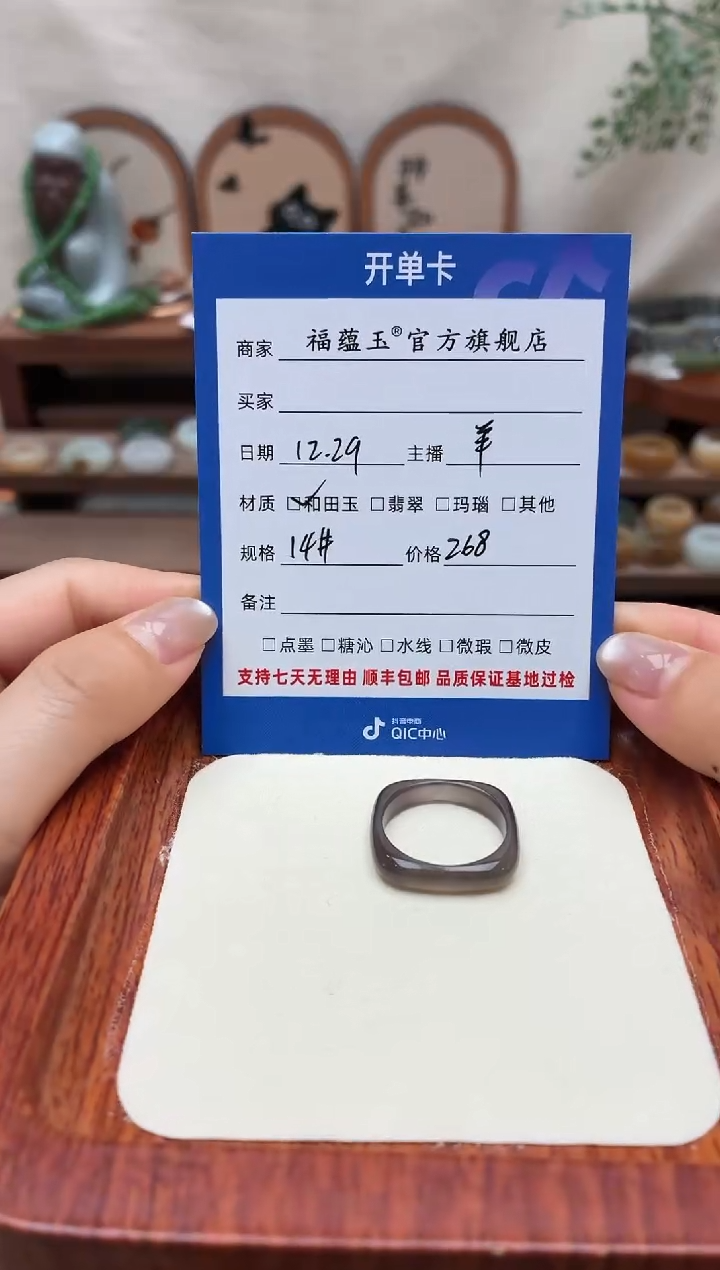 开单卡
商家 福蕴玉®官方旗舰店
买家
日期 12.29 主播 羊
材质 ☑和田玉 □翡翠 □玛瑙 □其他
规格 14# 价格 268
备注
□点墨 □糖沁 □水线 □微瑕 □微皮
支持七天无理由 顺丰包邮 品质保证基地过检
抖音电商
QIC中心